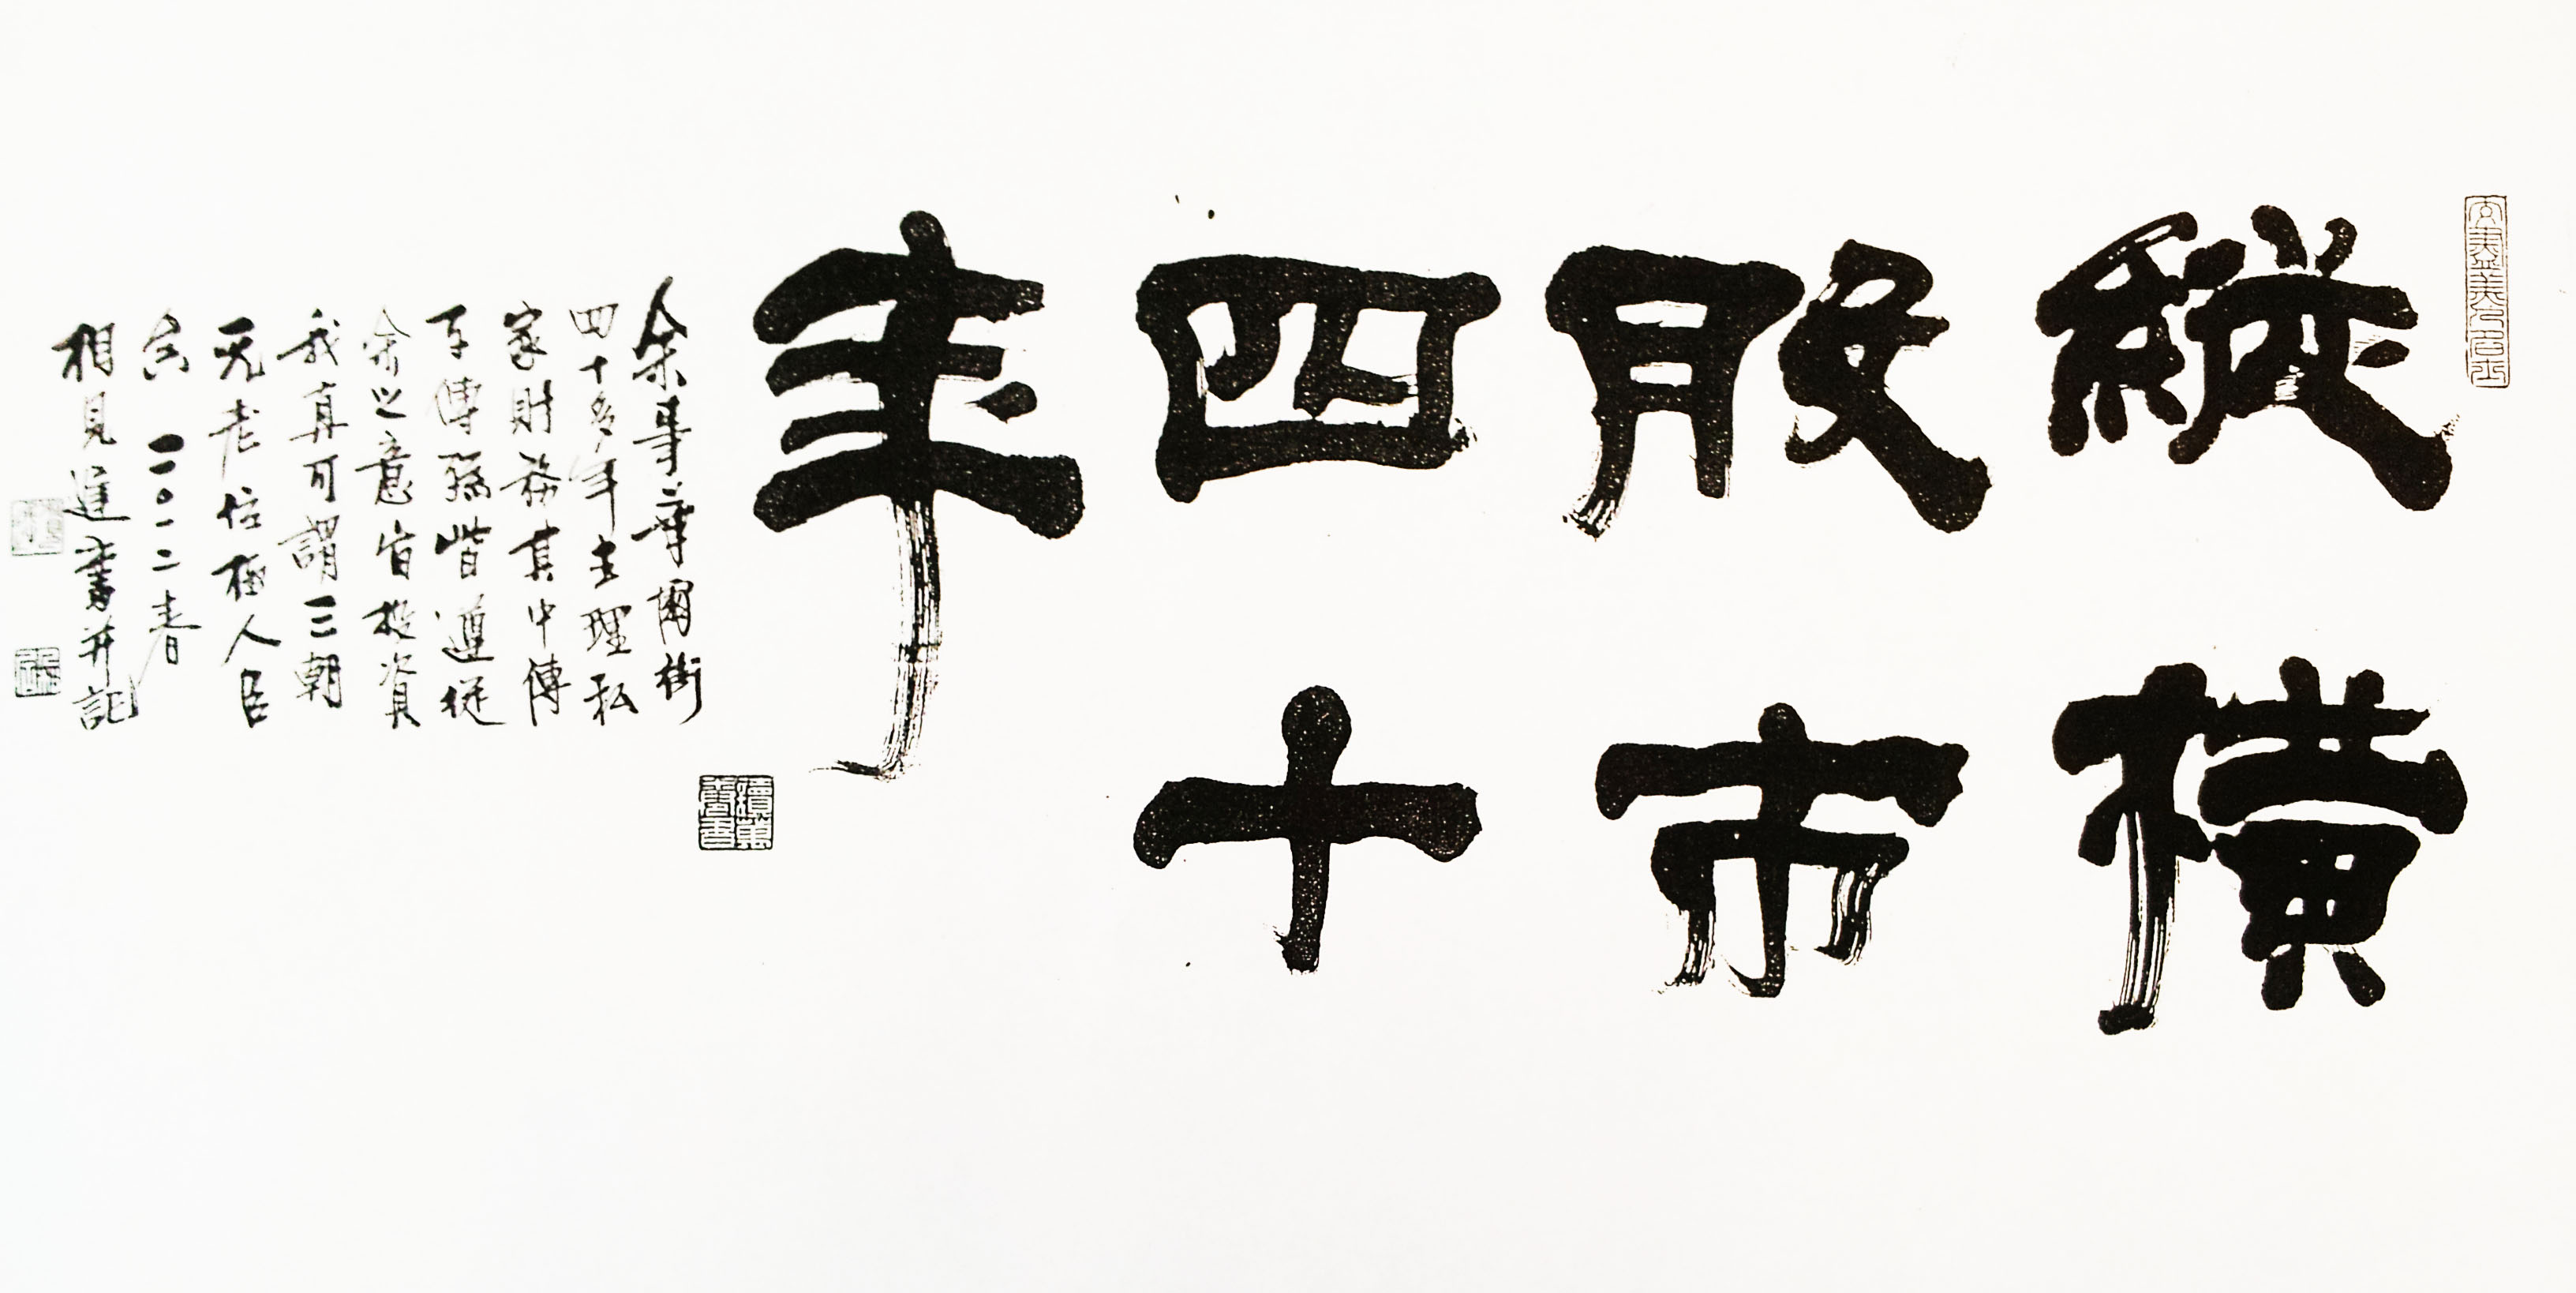 縱橫
股市
四十
年
余畢華爾街
四十多年主理私
家財務其中傳
子傳孫皆遵從
余之意旨投資
我真可謂三朝
元老位極人臣
矣 二〇一二春
相見進書并記